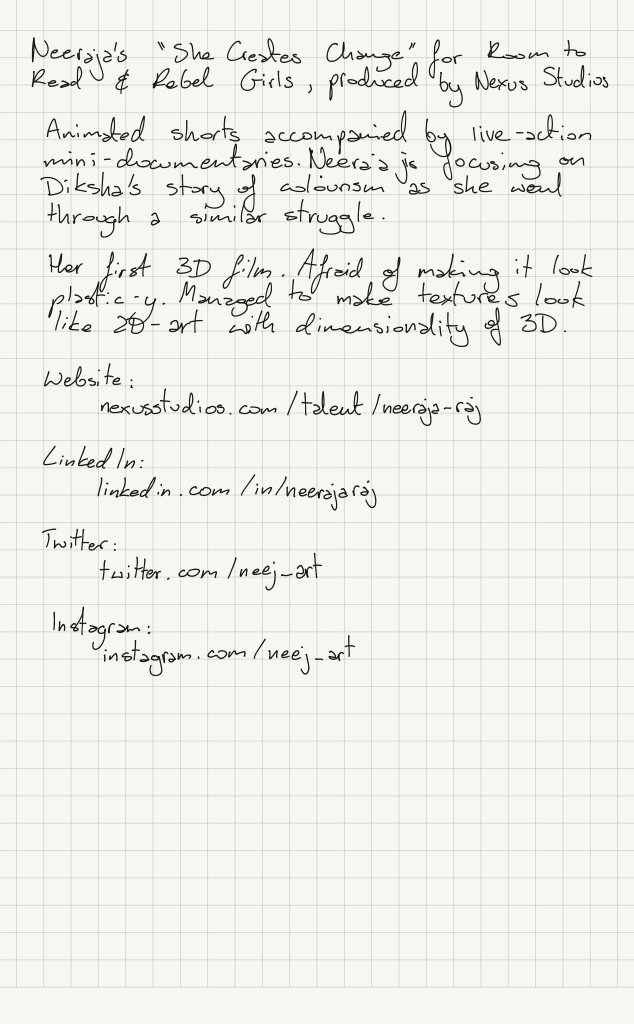 Neeraja's "She Creates Change" for Room to
Read & Rebel Girls, produced by Nexus Studios
Animated shorts accompanied by live-action
mini-documentaries. Neeraja is focusing on
Diksha's story of colourism as she went
through a similar struggle.
Her first 3D film. Afraid of making it look
plastic-y. Managed to make textures look
like 2D-art with dimensionality of 3D.
Website:
nexusstudios.com/talent/neeraja-raj
LinkedIn:
linkedin.com/in/neerajaraj
Twitter:
twitter.com/neej_art
Instagram:
instagram.com/neej_art